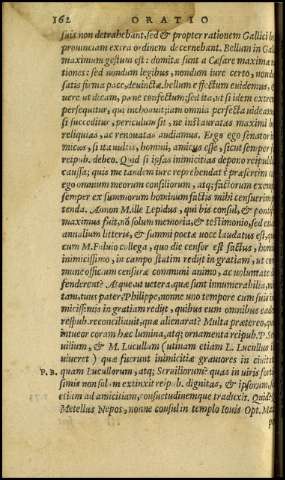 162 ORATIO
suis non detrahebant, sed & propter rationem Gallici b
prouinciam extra ordinem decernebant. Bellum in Gal
maximum gestum est: domitæ sunt a Cæsare maximæ n
tiones: sed nondum legibus, nondum iure certo, nond
satis firma pace, deuinctæ. bellum effectum uidemus, &
uere ut dicam, pæne confectum: sed ita, ut si idem extrem
persequitur, qui inchoauit, iam omnia perfecta uideam
si succeditur, periculum sit, ne instauratas maximi b
reliquias, ac renouatas audiamus. Ergo ego senator in
micus, si ita uultis, homini, amicus esse, sicut semper f
reipub. debeo. Quid si ipsas inimicitias depono reipub
caussa; quis me tandem iure reprehendat? præsertim c
ego omnium meorum consiliorum, atq; factorum exem
semper ex summorum hominum factis mihi censuerim
tenda. An non M. ille Lepidus, qui bis consul, & ponti
maximus fuit, nō solum memoriæ, & testimonio, sed eti
annalium litteris, & summi poetæ uoce laudatus est, qu
cum M. Fuluio collega, quo die censor est factus, homi
inimicissimo, in campo statim redijt in gratiam, ut co
mune officium censuræ communi animo, ac uoluntate d
fenderent? Atque, ut uetera, quæ sunt innumerabilia, m
tam, tuus pater, Philippe, nonne uno tempore cum suis in
micissimis in gratiam redijt, quibus eum omnibus ead
respub. reconciliauit, quæ alienarat? Multa prætereo, q
intueor coram hæc lumina, atq; ornamenta reipub. P. Se
uilium, & M. Lucullum (utinam etiam L. Lucullus i
uiueret) quæ fuerunt inimicitiæ grauiores in ciuit
P. B. quam Lucullorum, atq; Seruiliorum? quas in uiris forti
simis non solum extinxit reip. b. dignitas, & ipsorum, s
etiam ad amicitiam, consuetudinemque traduxit. Quid?
Metellus Nepos, nonne consul in templo Iouis Opt. Ma